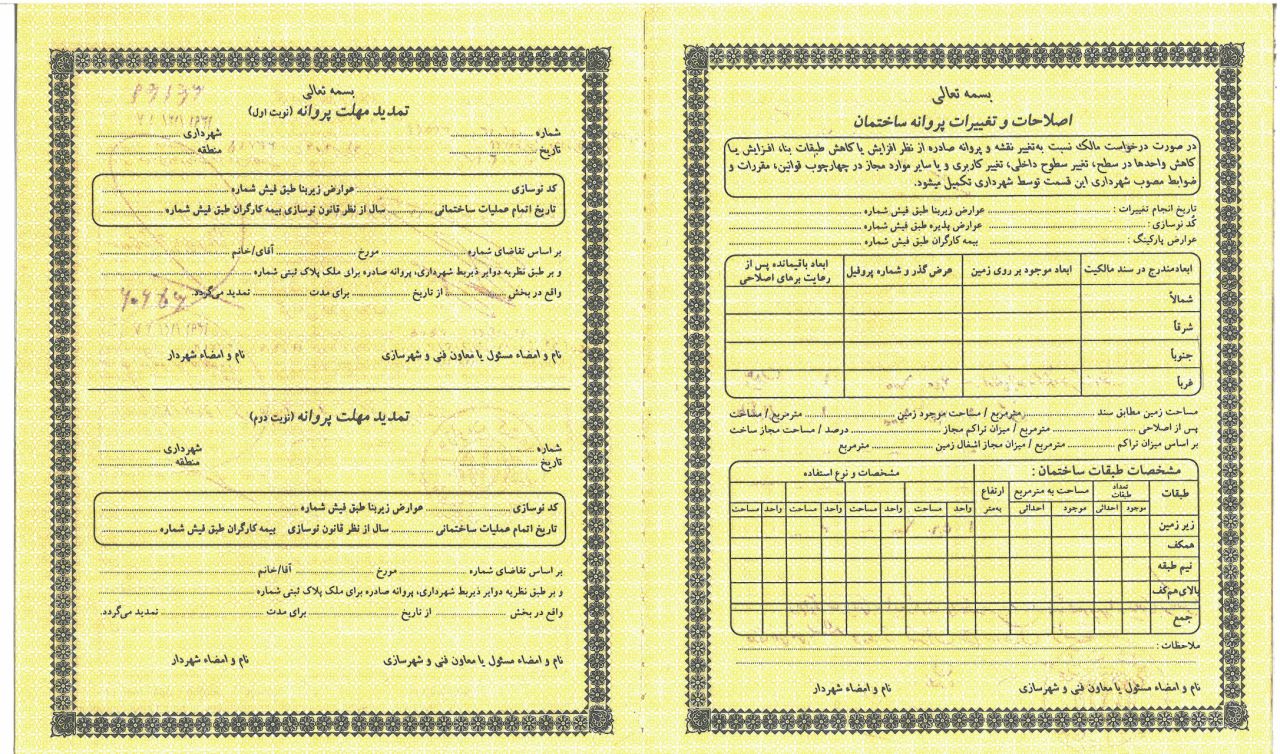 بسمه تعالی
اصلاحات و تغییرات پروانه ساختمان
در صورت درخواست مالک نسبت به تغییر نقشه و پروانه صادره از نظر افزایش یا کاهش طبقات بنا، افزایش یا
کاهش واحدها در سطح، تغییر سطوح داخلی، تغییر کاربری و یا سایر موارد مجاز در چهارچوب قوانین، مقررات و
ضوابط مصوب شهرداری این قسمت توسط شهرداری تکمیل میشود.
تاریخ انجام تغییرات : .................... عوارض زیربنا طبق فیش شماره ....................
کد نوسازی : .................... عوارض پذیره طبق فیش شماره ....................
عوارض پارکینگ : .................... بیمه کارگران طبق فیش شماره ....................
ابعاد مندرج در سند مالکیت ابعاد موجود بر روی زمین عرض گذر و شماره پروفیل ابعاد باقیمانده پس از
رعایت برهای اصلاحی
شمالاً
شرقاً
جنوباً
غرباً
مساحت زمین مطابق سند .................... مترمربع / مساحت موجود زمین .................... مترمربع / مساحت
پس از اصلاحی .................... مترمربع / میزان تراکم مجاز .................... درصد / مساحت مجاز ساخت
بر اساس میزان تراکم .................... مترمربع / میزان مجاز اشغال زمین .................... مترمربع
مشخصات طبقات ساختمان : مشخصات و نوع استفاده
طبقات تعداد طبقات مساحت به مترمربع ارتفاع
موجود احداثی موجود احداثی به متر واحد مساحت واحد مساحت واحد مساحت واحد مساحت
زیر زمین
همکف
نیم طبقه
بالای هم کف
جمع
ملاحظات : ....................
نام و امضاء مسئول یا معاون فنی و شهرسازی نام و امضاء شهردار
بسمه تعالی
تمدید مهلت پروانه (نوبت اول)
شماره .................... شهرداری ....................
تاریخ .................... منطقه ....................
کد نوسازی .................... عوارض زیربنا طبق فیش شماره ....................
تاریخ اتمام عملیات ساختمانی .................... سال از نظر قانون نوسازی بیمه کارگران طبق فیش شماره ....................
بر اساس تقاضای شماره .................... مورخ .................... آقای/خانم ....................
و بر طبق نظریه دوایر ذیربط شهرداری، پروانه صادره برای ملک پلاک ثبتی شماره ....................
واقع در بخش .................... از تاریخ .................... برای مدت .................... تمدید می‌گردد.
نام و امضاء مسئول یا معاون فنی و شهرسازی نام و امضاء شهردار
تمدید مهلت پروانه (نوبت دوم)
شماره .................... شهرداری ....................
تاریخ .................... منطقه ....................
کد نوسازی .................... عوارض زیربنا طبق فیش شماره ....................
تاریخ اتمام عملیات ساختمانی .................... سال از نظر قانون نوسازی بیمه کارگران طبق فیش شماره ....................
بر اساس تقاضای شماره .................... مورخ .................... آقا/خانم ....................
و بر طبق نظریه دوایر ذیربط شهرداری، پروانه صادره برای ملک پلاک ثبتی شماره ....................
واقع در بخش .................... از تاریخ .................... برای مدت .................... تمدید می‌گردد.
نام و امضاء مسئول یا معاون فنی و شهرسازی نام و امضاء شهردار